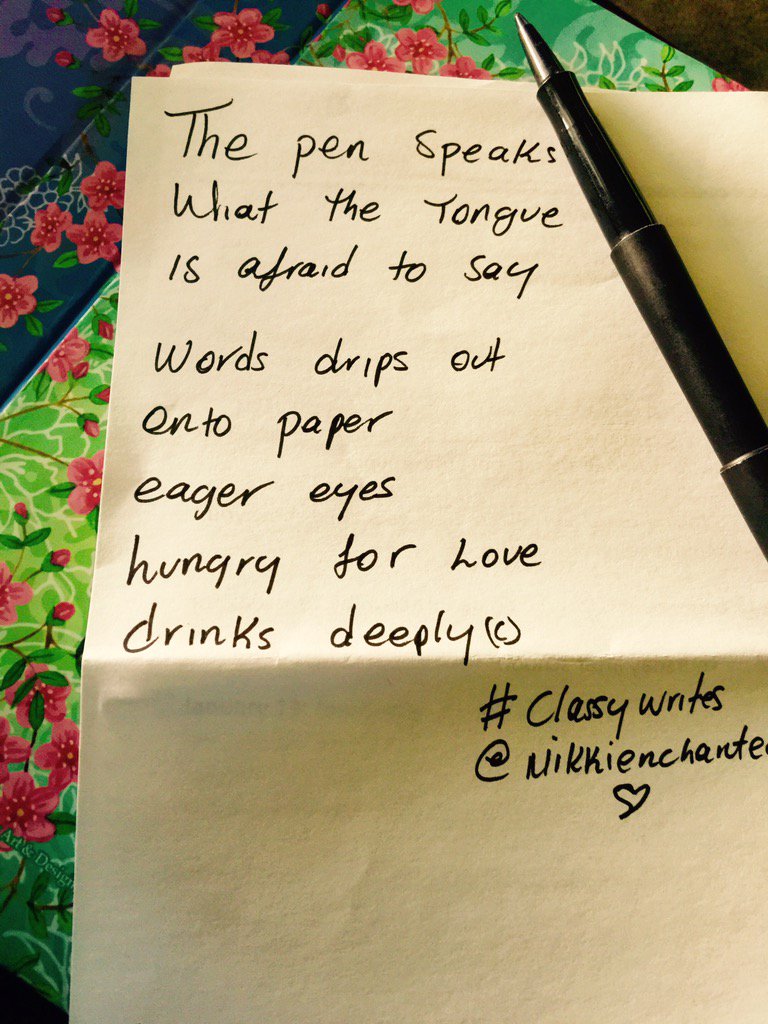 The pen speaks
What the Tongue
is afraid to say
Words drips out
onto paper
eager eyes
hungry for Love
drinks deeply (c)
# Classy writes
@Nikkienchante
Art & Design